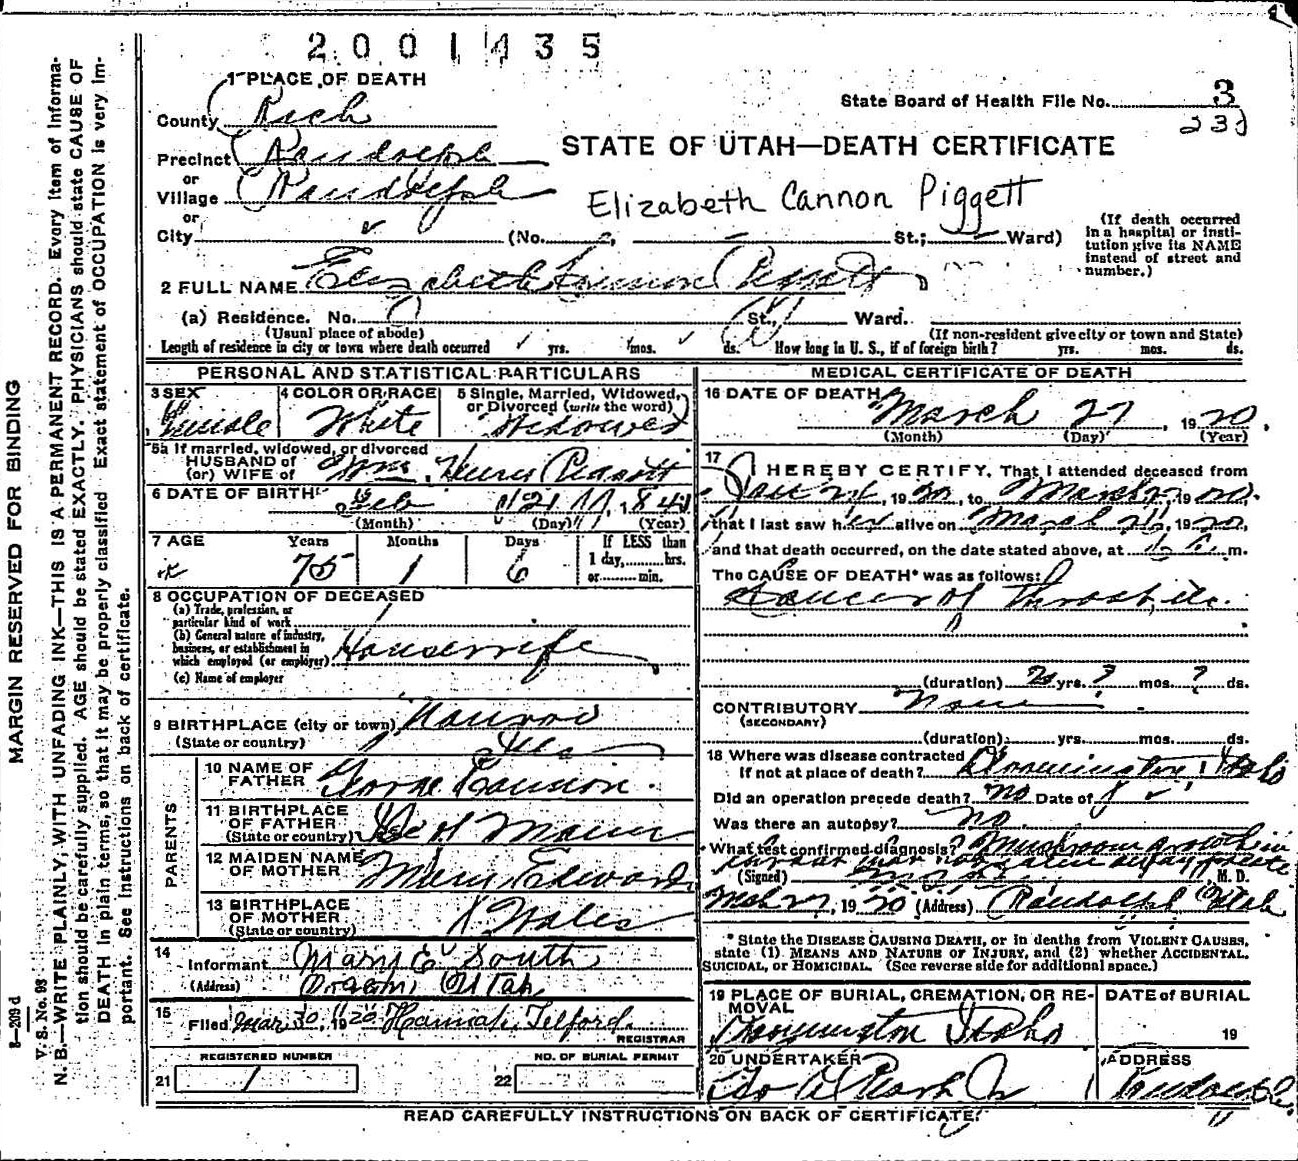 2001435
1 PLACE OF DEATH
State Board of Health File No. 3
232
County Rich
Precinct Randolph
STATE OF UTAH—DEATH CERTIFICATE
or
Village Randolph
Elizabeth Cannon Piggett
or
City (No. St.; Ward)
(If death occurred in a hospital or institution give its NAME instead of street and number.)
2 FULL NAME Elizabeth Cannon Piggott
(a) Residence. No. St., Ward.
(Usual place of abode) (If non-resident give city or town and State)
Length of residence in city or town where death occurred yrs. mos. ds. How long in U. S., if of foreign birth? yrs. mos. ds.
PERSONAL AND STATISTICAL PARTICULARS
3 SEX Female
4 COLOR OR RACE White
5 Single, Married, Widowed, or Divorced (write the word) Widowed
5a If married, widowed, or divorced
HUSBAND of
(or) WIFE of Wm. Henry Piggott
6 DATE OF BIRTH Feb 21
(Month) (Day) (Year)
7 AGE Years Months Days If LESS than
75 1 6 1 day, hrs.
or min.
8 OCCUPATION OF DECEASED
(a) Trade, profession, or
particular kind of work
(b) General nature of industry,
business, or establishment in
which employed (or employer) Housewife
(c) Name of employer
9 BIRTHPLACE (city or town) Nauvoo
(State or country) Ills
PARENTS
10 NAME OF FATHER George Cannon.
11 BIRTHPLACE OF FATHER
(State or country) Isle of Mann
12 MAIDEN NAME OF MOTHER Mary Edwards
13 BIRTHPLACE OF MOTHER
(State or country) Wales
14 Informant Mary E South
(Address) Utah
15 Filed Mar 30, 1920 Hannah Telford.
REGISTRAR
REGISTERED NUMBER NO. OF BURIAL PERMIT
21 1 22
MEDICAL CERTIFICATE OF DEATH
16 DATE OF DEATH March 27, 1920.
(Month) (Day) (Year)
17 I HEREBY CERTIFY, That I attended deceased from
1920, to March 27, 1920.
that I last saw her alive on March 1920,
and that death occurred, on the date stated above, at m.
The CAUSE OF DEATH* was as follows:
Cancer of Throat, etc.
(duration) yrs. ? mos. ? ds.
CONTRIBUTORY None
(SECONDARY)
(duration) yrs. mos. ds.
18 Where was disease contracted
If not at place of death? Bloomington, Idaho
Did an operation precede death? no Date of
Was there an autopsy? no
What test confirmed diagnosis? Mushroom growth in
throat
(Signed) M. D.
Mch 27, 1920 (Address) Randolph Utah
* State the DISEASE CAUSING DEATH, or in deaths from VIOLENT CAUSES,
state (1) MEANS AND NATURE OF INJURY, and (2) whether ACCIDENTAL,
SUICIDAL, or HOMICIDAL. (See reverse side for additional space.)
19 PLACE OF BURIAL, CREMATION, OR REMOVAL DATE of BURIAL
Bloomington Idaho 19
20 UNDERTAKER ADDRESS
Randolph
READ CAREFULLY INSTRUCTIONS ON BACK OF CERTIFICATE.
MARGIN RESERVED FOR BINDING
8—209d
V. S. No. 93
N. B.—WRITE PLAINLY, WITH UNFADING INK—THIS IS A PERMANENT RECORD. Every item of information should be carefully supplied. AGE should be stated EXACTLY. PHYSICIANS should state CAUSE OF DEATH in plain terms, so that it may be properly classified. Exact statement of OCCUPATION is very important. See instructions on back of certificate.